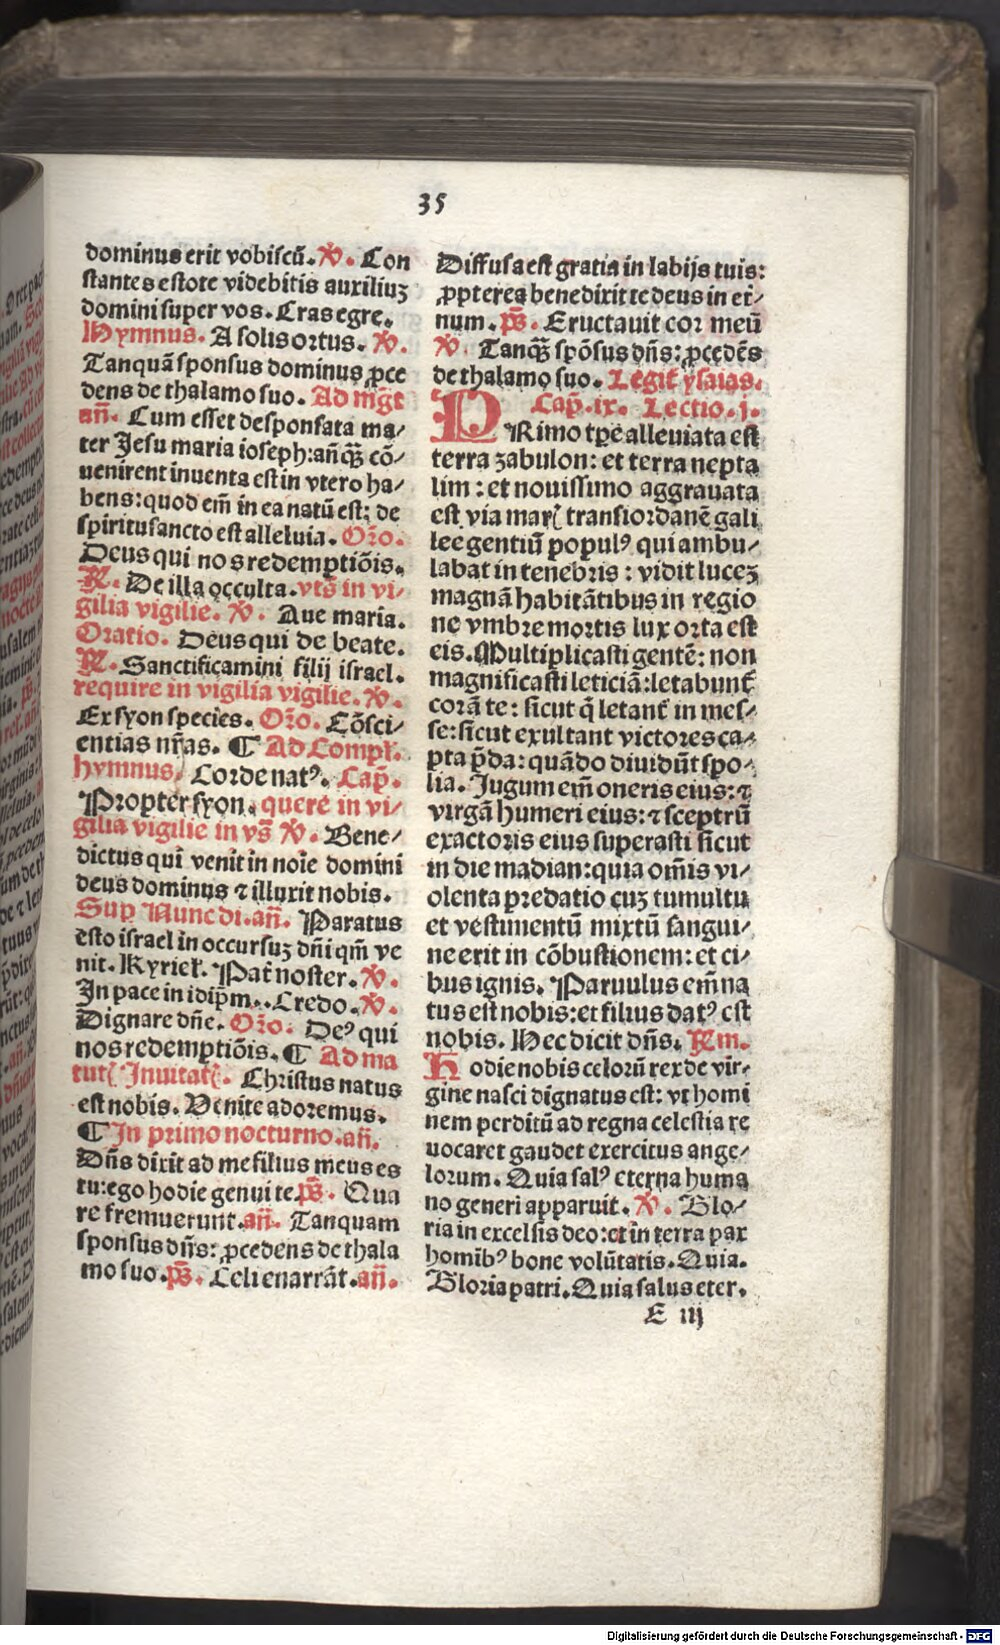 35
dominus erit vobiscū. ℣. Con
stantes estote videbitis auxiliuꝫ
domini super vos. Cras egre.
Hymnus. A solis ortus. ℣.
Tanquā sponsus dominus ꝓce
dens de thalamo suo. Ad mgt̄
an̄. Cum esset desponsata ma⸗
ter Jesu maria ioseph: an̄qꝫ cō⸗
uenirent inuenta est in vtero ha⸗
bens: quod em̄ in ea natū est: de
spiritusancto est alleluia. Oro.
Deus qui nos redemptiōis.
℟. De illa occulta. vts̄ in vi⸗
gilia vigilie. ℣. Aue maria.
Oratio. Deus qui de beate.
℟. Sanctificamini filij israel.
require in vigilia vigilie. ℣.
Ex syon species. Oro. Cōsci⸗
entias nr̄as. ¶ Ad Compl̄.
hymnus. Corde natꝰ. Cap̄.
Propter syon. quere in vi⸗
gilia vigilie in vs̄ ℣. Bene⸗
dictus qui venit in noīe domini
deus dominus ⁊ illuxit nobis.
Sup Nunc di. an̄. Paratus
esto israel in occursuꝫ dn̄i qm̄ ve
nit. Kyriel̄. Pat̄ noster. ℣.
In pace in idip̄m. Credo. ℣.
Dignare dn̄e. Oro. Deꝰ qui
nos redemptiōis. ¶ Ad ma
tutꝭ Inuitatꝭ. Christus natus
est nobis. Venite adoremus.
¶ In primo nocturno. an̄.
Dn̄s dixit ad me filius meus es
tu: ego hodie genui te. ps̄. Qua
re fremuerunt. an̄. Tanquam
sponsus dn̄s: ꝓcedens de thala
mo suo. ps̄. Celi enarrāt. an̄.
Diffusa est gratia in labijs tuis:
ꝓpterea benedixit te deus in et̄⸗
num. ps̄. Eructauit cor meū
℣. Tanqꝫ spōsus dn̄s: ꝓcedēs
de thalamo suo. Legit̄ ysaias.
Cap̄. ix. Lectio. j.
PRimo tꝑe alleuiata est
terra zabulon: et terra nepta
lim: et nouissimo aggrauata
est via marꝭ transiordanē gali
lee gentiū populꝰ qui ambu⸗
labat in tenebris: vidit luceꝫ
magnā habitātibus in regio
ne vmbre mortis lux orta est
eis. Multiplicasti gentē: non
magnificasti leticiā: letabunt̄
corā te: sicut q̄ letant̄ in mes⸗
se: sicut exultant victores ca⸗
pta p̄da: quādo diuidūt spo⸗
lia. Jugum em̄ oneris eius: ⁊
virgā humeri eius: ⁊ sceptrū
exactoris eius superasti sicut
in die madian: quia om̄is vi⸗
olenta predatio cuꝫ tumultu
et vestimentū mixtū sangui⸗
ne erit in cōbustionem: et ci⸗
bus ignis. Paruulus em̄ na
tus est nobis: et filius datꝰ est
nobis. Hec dicit dn̄s. Rm.
Hodie nobis celorū rex de vir⸗
gine nasci dignatus est: vt homi
nem perditū ad regna celestia re
uocaret gaudet exercitus ange⸗
lorum. Quia salꝰ eterna huma
no generi apparuit. ℣. Glo⸗
ria in excelsis deo: et in terra pax
homībꝰ bone volūtatis. Quia.
Gloria patri. Quia salus eter.
E iij
Digitalisierung gefördert durch die Deutsche Forschungsgemeinschaft - DFG